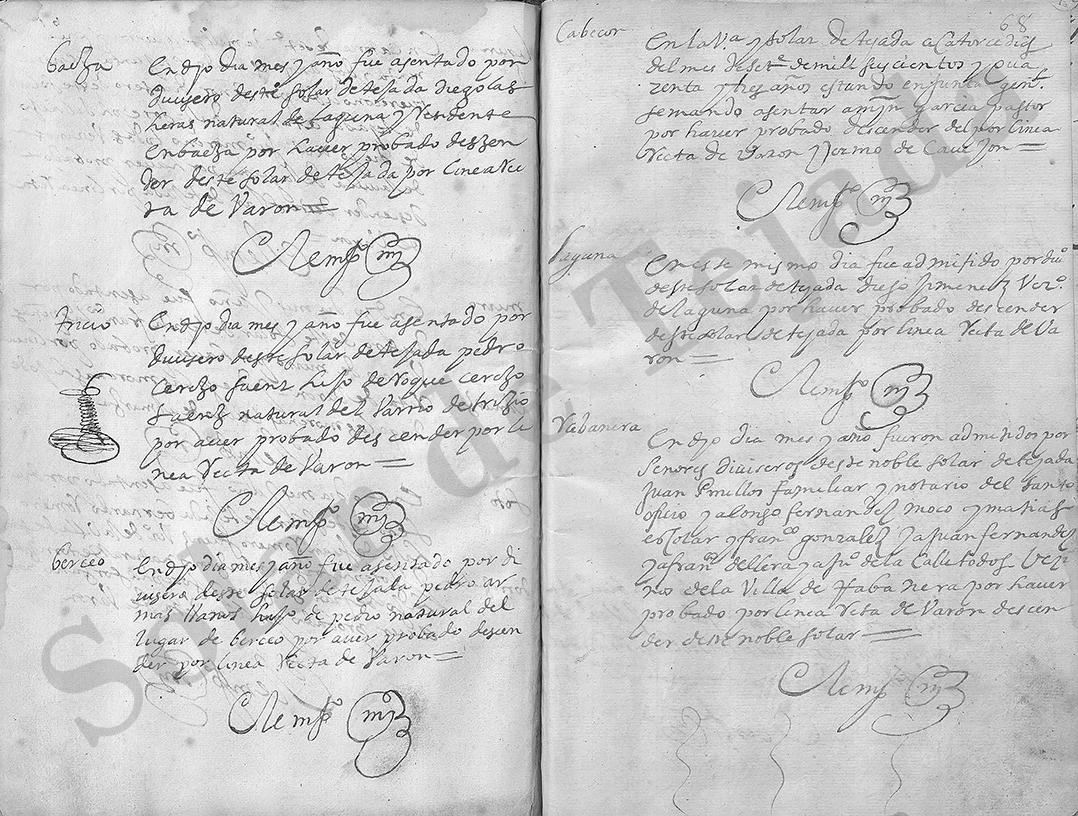 baeza
En dho dia mes y año fue asentado por
diuisero deste solar de tejada diego las
heras natural de laguna y Residente
en baeza por hauer probado deszen
der deste solar de tejada por linea Rec
ta de Varon
Clemte
tricio
En dho dia mes y año fue asentado por
diuisero deste solar de tejada pedro
cerezo saenz hijo de Roque cerezo
saenz natural del Varrio de trizio
por auer probado descender por li
nea Recta de Varon
Clemte
berceo
En dho dia mes y año fue asentado por di
uisero deste solar de tejada pedro ar
mas llanos hijo de pedro natural del
lugar de berceo por auer probado descen
der por linea Recta de Varon
Clemte
68
Cabecon
En la Va y solar de tejada a catorce dias
del mes de sete de mill seyscientos y qua
renta y tres años estando en junta genl
se mando asentar a min garcia pastor
por hauer probado descender del por linea
Recta de Varon y Vermo de
Clemte
laguna
En este mismo dia fue admitido por diuo
deste solar de tejada diego ximenez Vezo
de laguna por hauer probado descender
deste solar de tejada por linea Recta de Va
ron
Clemte
Rabanera
En dho dia mes y año fueron admitidos por
señores diuiseros deste noble solar de tejada
Juan Pinillos familiar y notario del santo
oficio y alonso fernandez moco y matias
escolar y franco gonzalez y a juan fernandez
y a fran de llera y a ju de la Calle todos Vezi
nos de la Villa de Rabanera por hauer
probado por linea Recta de Varon descen
der deste noble solar
Clemte
Solar de Tejada